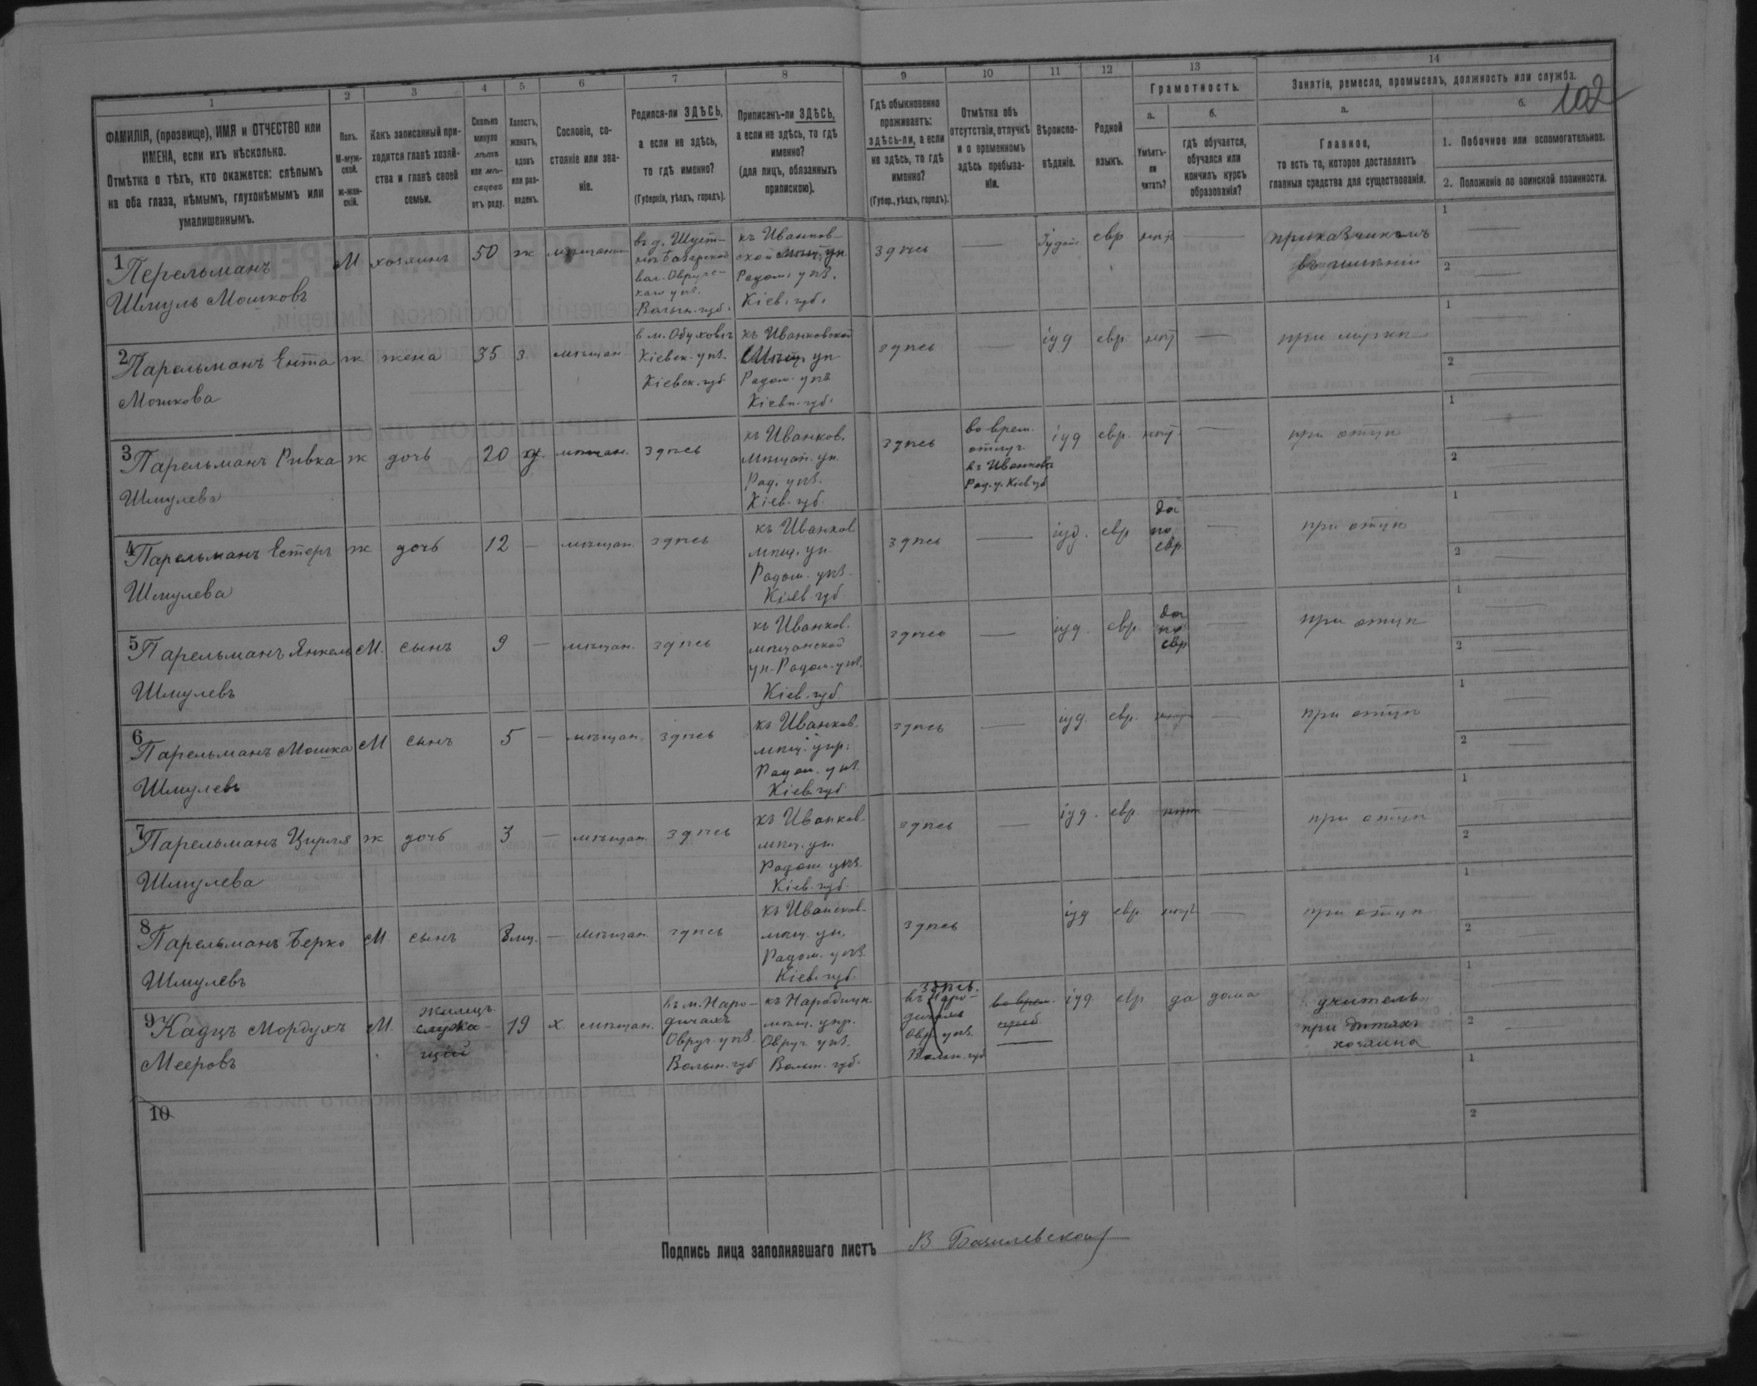 102
1
2
3
4
5
6
7
8
9
10
11
12
13
14
ФАМИЛІЯ, (прозвище), ИМЯ и ОТЧЕСТВО или
ИМЕНА, если ихъ нѣсколько.
Отмѣтка о тѣхъ, кто окажется: слѣпымъ
на оба глаза, нѣмымъ, глухонѣмымъ или
умалишеннымъ.
Полъ.
М-муж-
ской.
ж-жен-
скій.
Какъ записанный при-
ходится главѣ хозяй-
ства и главѣ своей
семьи.
Сколько
минуло
лѣтъ
или мѣ-
сяцевъ
отъ роду.
Холостъ,
женатъ,
вдовъ
или раз-
веденъ.
Сословіе, со-
стояніе или зва-
ніе.
Родился-ли ЗДѢСЬ,
а если не здѣсь,
то гдѣ именно?
(Губернія, уѣздъ, городъ).
Приписанъ-ли ЗДѢСЬ,
а если не здѣсь, то гдѣ
именно?
(для лицъ, обязанныхъ
припискою).
Гдѣ обыкновенно
проживаетъ:
здѣсь-ли, а если
не здѣсь, то гдѣ
именно?
(Губер., уѣздъ, городъ).
Отмѣтка объ
отсутствіи, отлучкѣ
и о временномъ
здѣсь пребыва-
ніи.
Вѣроиспо-
вѣданіе.
Родной
языкъ.
Грамотность.
а.
Умѣетъ-
ли
читать?
б.
гдѣ обучается,
обучался или
кончилъ курсъ
образованія?
Занятіе, ремесло, промыселъ, должность или служба.
а.
Главное,
то есть то, которое доставляетъ
главныя средства для существованія.
б.
1. Побочное или вспомогательное.
2. Положеніе по воинской повинности.
1 Перельманъ
Шмуль Мошковъ
М
хозяинъ
50
ж
мѣщанин
Овруч-
Волын. губ.
къ Иванков-
ской мѣщ. уп
Радом. уѣз.
Кіев. губ.
здѣсь
—
іудей
евр
нѣт
—
прикащикомъ
въ имѣніи
1
2
2 Парельманъ Ента
Мошкова
ж
жена
35
з.
мѣщан.
в м. Обуховѣ
Кіевск. уѣз.
Кіевск. губ
къ Иванковской
мѣщ. уп
Радом. уѣз
Кіевс. губ.
здѣсь
—
іуд
евр.
нѣт
—
при мужѣ
1
2
3 Парельманъ Ривка
Шмулева
ж
дочь
20
мѣщан.
здѣсь
къ Иванков.
мѣщан. уп.
Рад. уѣз.
Кіев. губ.
здѣсь
во врем.
отлуч
въ Иванковѣ
Рад. у. Кіев губ
іуд
евр.
нѣт.
—
при отцѣ
1
2
4 Парельманъ Естеръ
Шмулева
ж
дочь
12
—
мѣщан.
здѣсь
къ Иванков
мѣщ. уп.
Радом. уѣз.
Кіев губ
здѣсь
—
іуд.
евр
да
по
евр.
—
при отцѣ
1
2
5 Парельманъ Янкель
Шмулевъ
М.
сынъ
9
—
мѣщан.
здѣсь
къ Иванков.
мѣщанской
уп. Радом. уѣз.
Кіев. губ
здѣсь
—
іуд.
евр.
да
по
евр
—
при отцѣ
1
2
6 Парельманъ Мошка
Шмулевъ
М
сынъ
5
—
мѣщан.
здѣсь
къ Иванков.
мѣщ. упр.
Радом. уѣз.
Кіев губ
здѣсь
—
іуд.
евр.
—
при отцѣ
1
2
7 Парельманъ Цирля
Шмулева
ж
дочь
3
—
мѣщан.
здѣсь
къ Иванков.
мѣщ. уп.
Радом уѣз.
Кіев. губ.
здѣсь
—
іуд.
евр.
нѣт
—
при отцѣ
1
2
8 Парельманъ Берко
Шмулевъ
М
сынъ
мѣщан.
здѣсь
къ Иванков.
мѣщ. уп.
Радом. уѣз.
Кіев. губ.
здѣсь
іуд
евр.
нѣт
—
при отцѣ
1
2
9 Кацъ Мордухъ
Мееровъ
М.
жилецъ
служа-
щій
19
х
мѣщан.
въ м. Наро-
дичахъ
Овруч. уѣз.
Волын. губ
къ Народицк
мѣщ. упр.
Овруч. уѣз.
Волын. губ.
здѣсь.
въ Наро-
дичахъ
Овр. уѣз.
Волын. губ
во врем.
преб.
іуд.
евр
да
дома
учитель
при дѣтяхъ
хозяина
1
2
10
1
2
Подпись лица заполнявшаго листъ